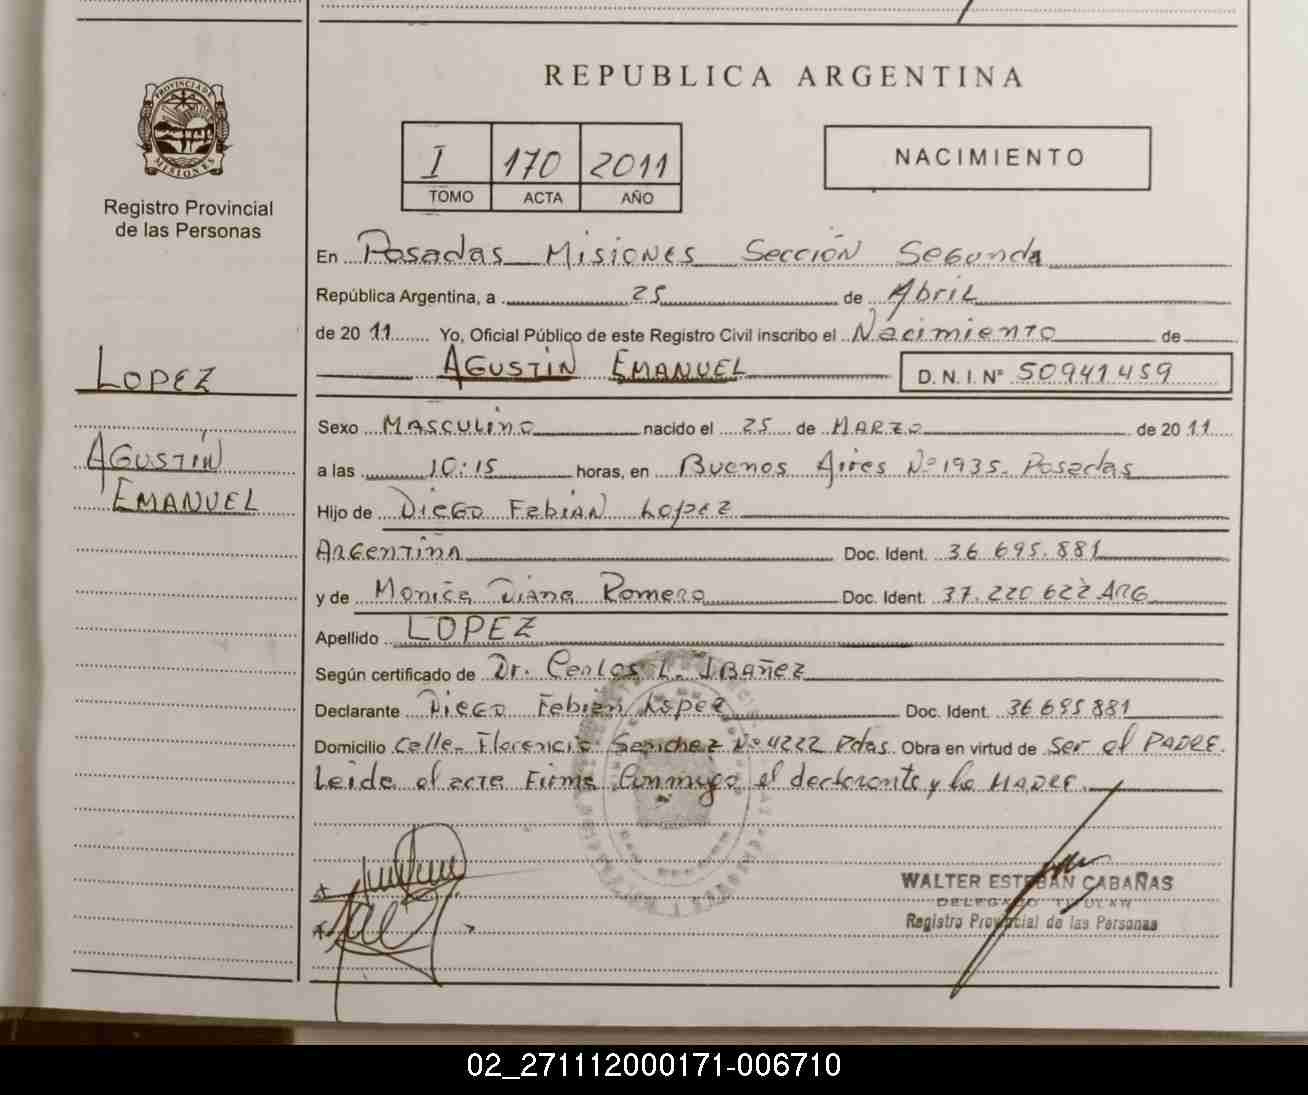 REPUBLICA ARGENTINA
PROVINCIA DE
MISIONES
Registro Provincial
de las Personas
I 170 2011
TOMO ACTA AÑO
NACIMIENTO
En Posadas Misiones Sección Segunda
República Argentina, a 25 de Abril
de 2011 Yo, Oficial Público de este Registro Civil inscribo el Nacimiento de
AGUSTÍN EMANUEL D. N. I. N° 50941459
LOPEZ
AGUSTÍN
EMANUEL
Sexo MASCULINO nacido el 25 de MARZO de 2011
a las 10:15 horas, en Buenos Aires Nº 1935. Posadas
Hijo de Diego Fabián Lopez
Argentina Doc. Ident. 36 695.881
y de Monica Diana Romero Doc. Ident. 37.220 622 ARG
Apellido LOPEZ
Según certificado de Dr. Carlos L. IBAÑEZ
Declarante Diego Fabián López Doc. Ident. 36695881
Domicilio Calle Florencio Sanchez Nº 4222 Pdas. Obra en virtud de ser el PADRE.
Leida el acta Firma Conmigo el declarante y la MADRE.
WALTER ESTEBAN CABAÑAS
DELEGADO TITULAR
Registro Provincial de las Personas
02_271112000171-006710